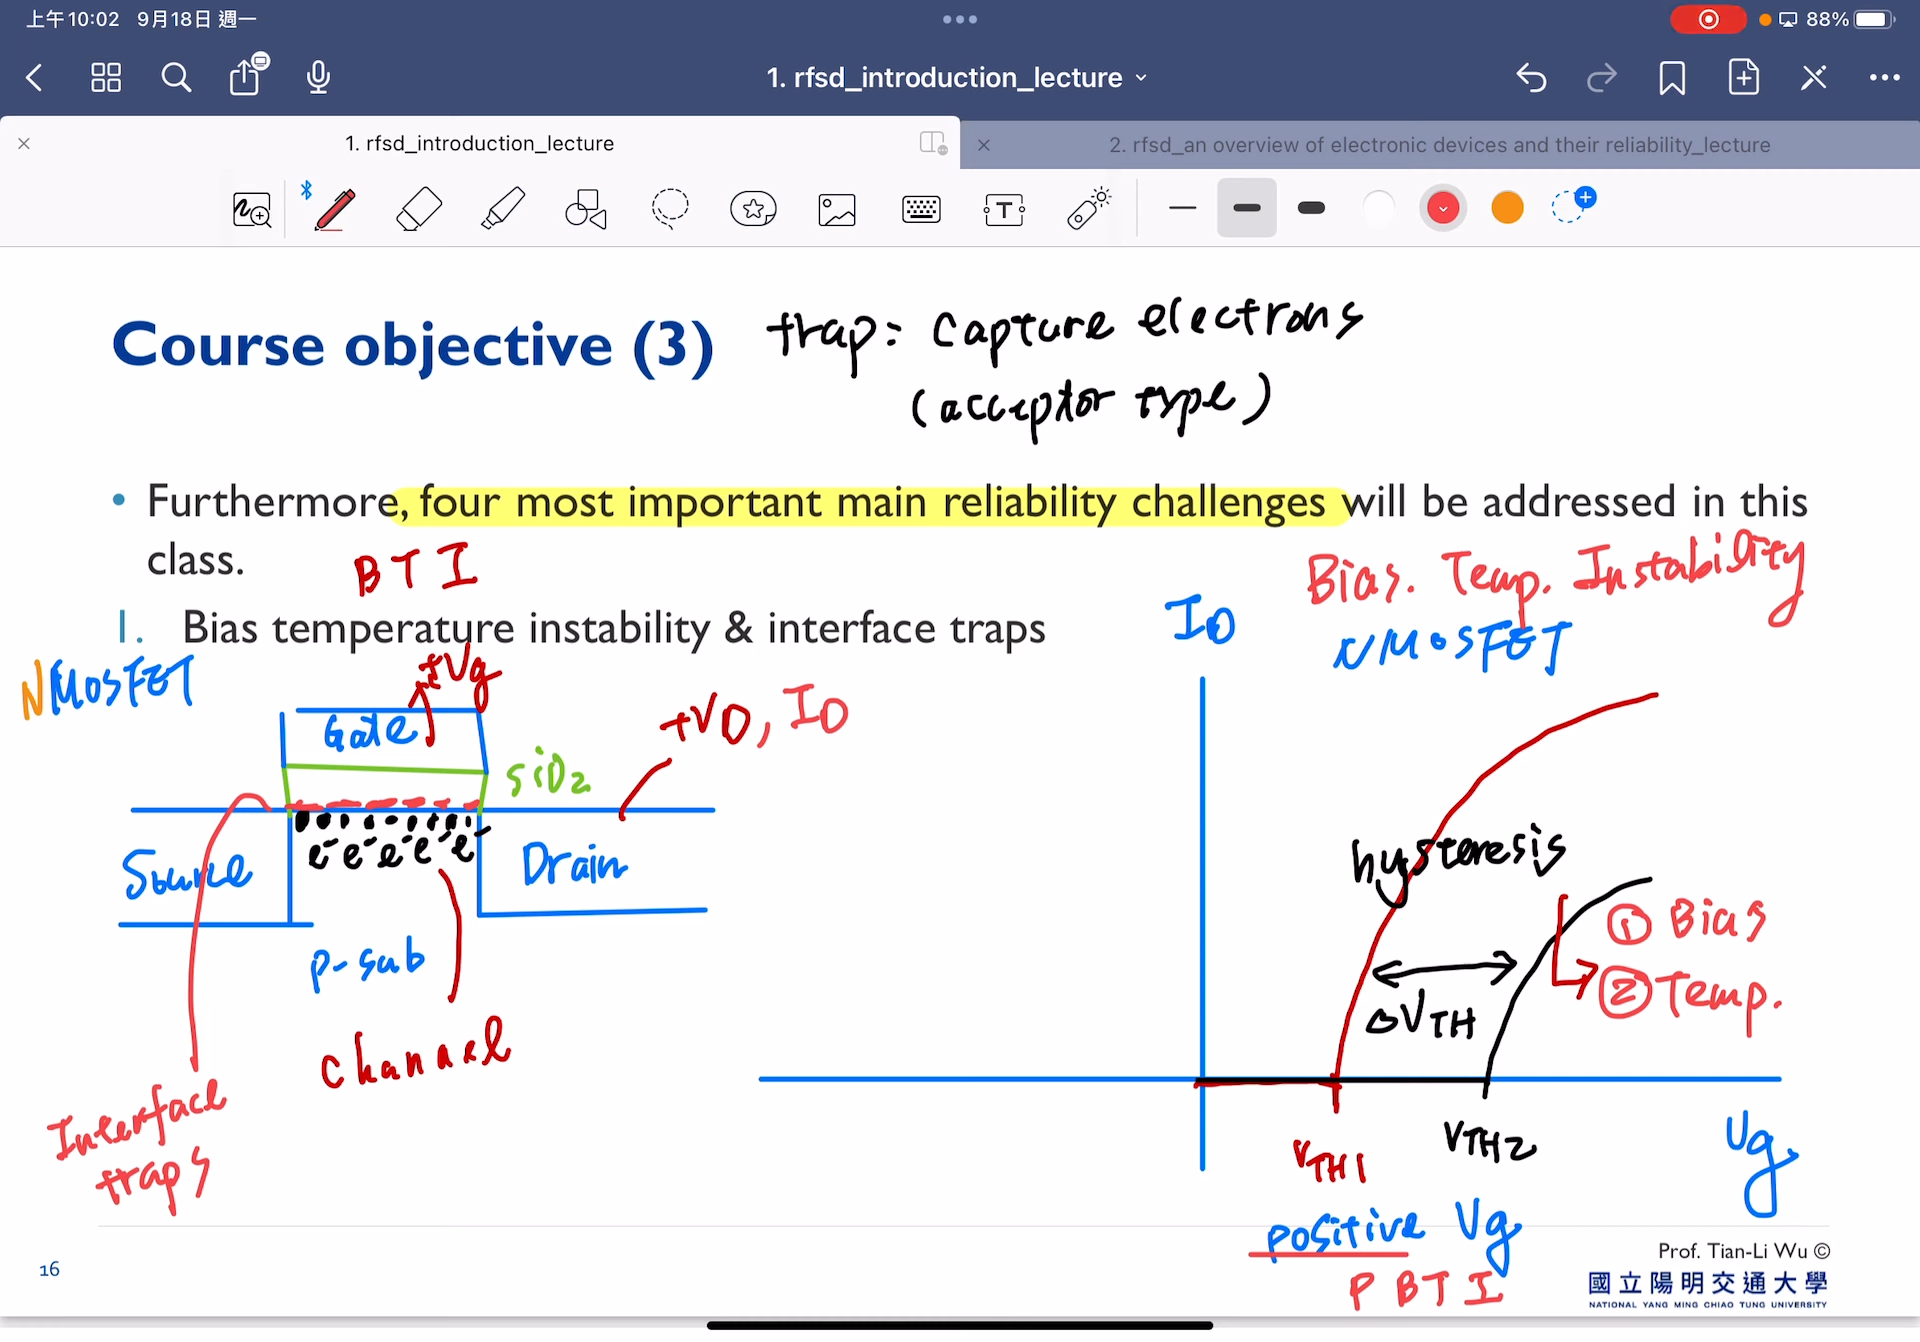 上午10:02 9月18日 週一
88%
1. rfsd_introduction_lecture
1. rfsd_introduction_lecture
2. rfsd_an overview of electronic devices and their reliability_lecture
T
Course objective (3)
trap: capture electrons
(acceptor type)
• Furthermore, four most important main reliability challenges will be addressed in this
class.
BTI
Bias. Temp. Instability
1. Bias temperature instability & interface traps
ID
NMOSFET
NMOSFET
+Vg
Gate
+VD, ID
SiO2
hysteresis
e- e- e- e- e-
Source
Drain
① Bias
② Temp.
P-sub
ΔVTH
channel
Interface
traps
VTH1
VTH2
Vg
positive Vg
PBTI
16
Prof. Tian-Li Wu ©
國立陽明交通大學
NATIONAL YANG MING CHIAO TUNG UNIVERSITY